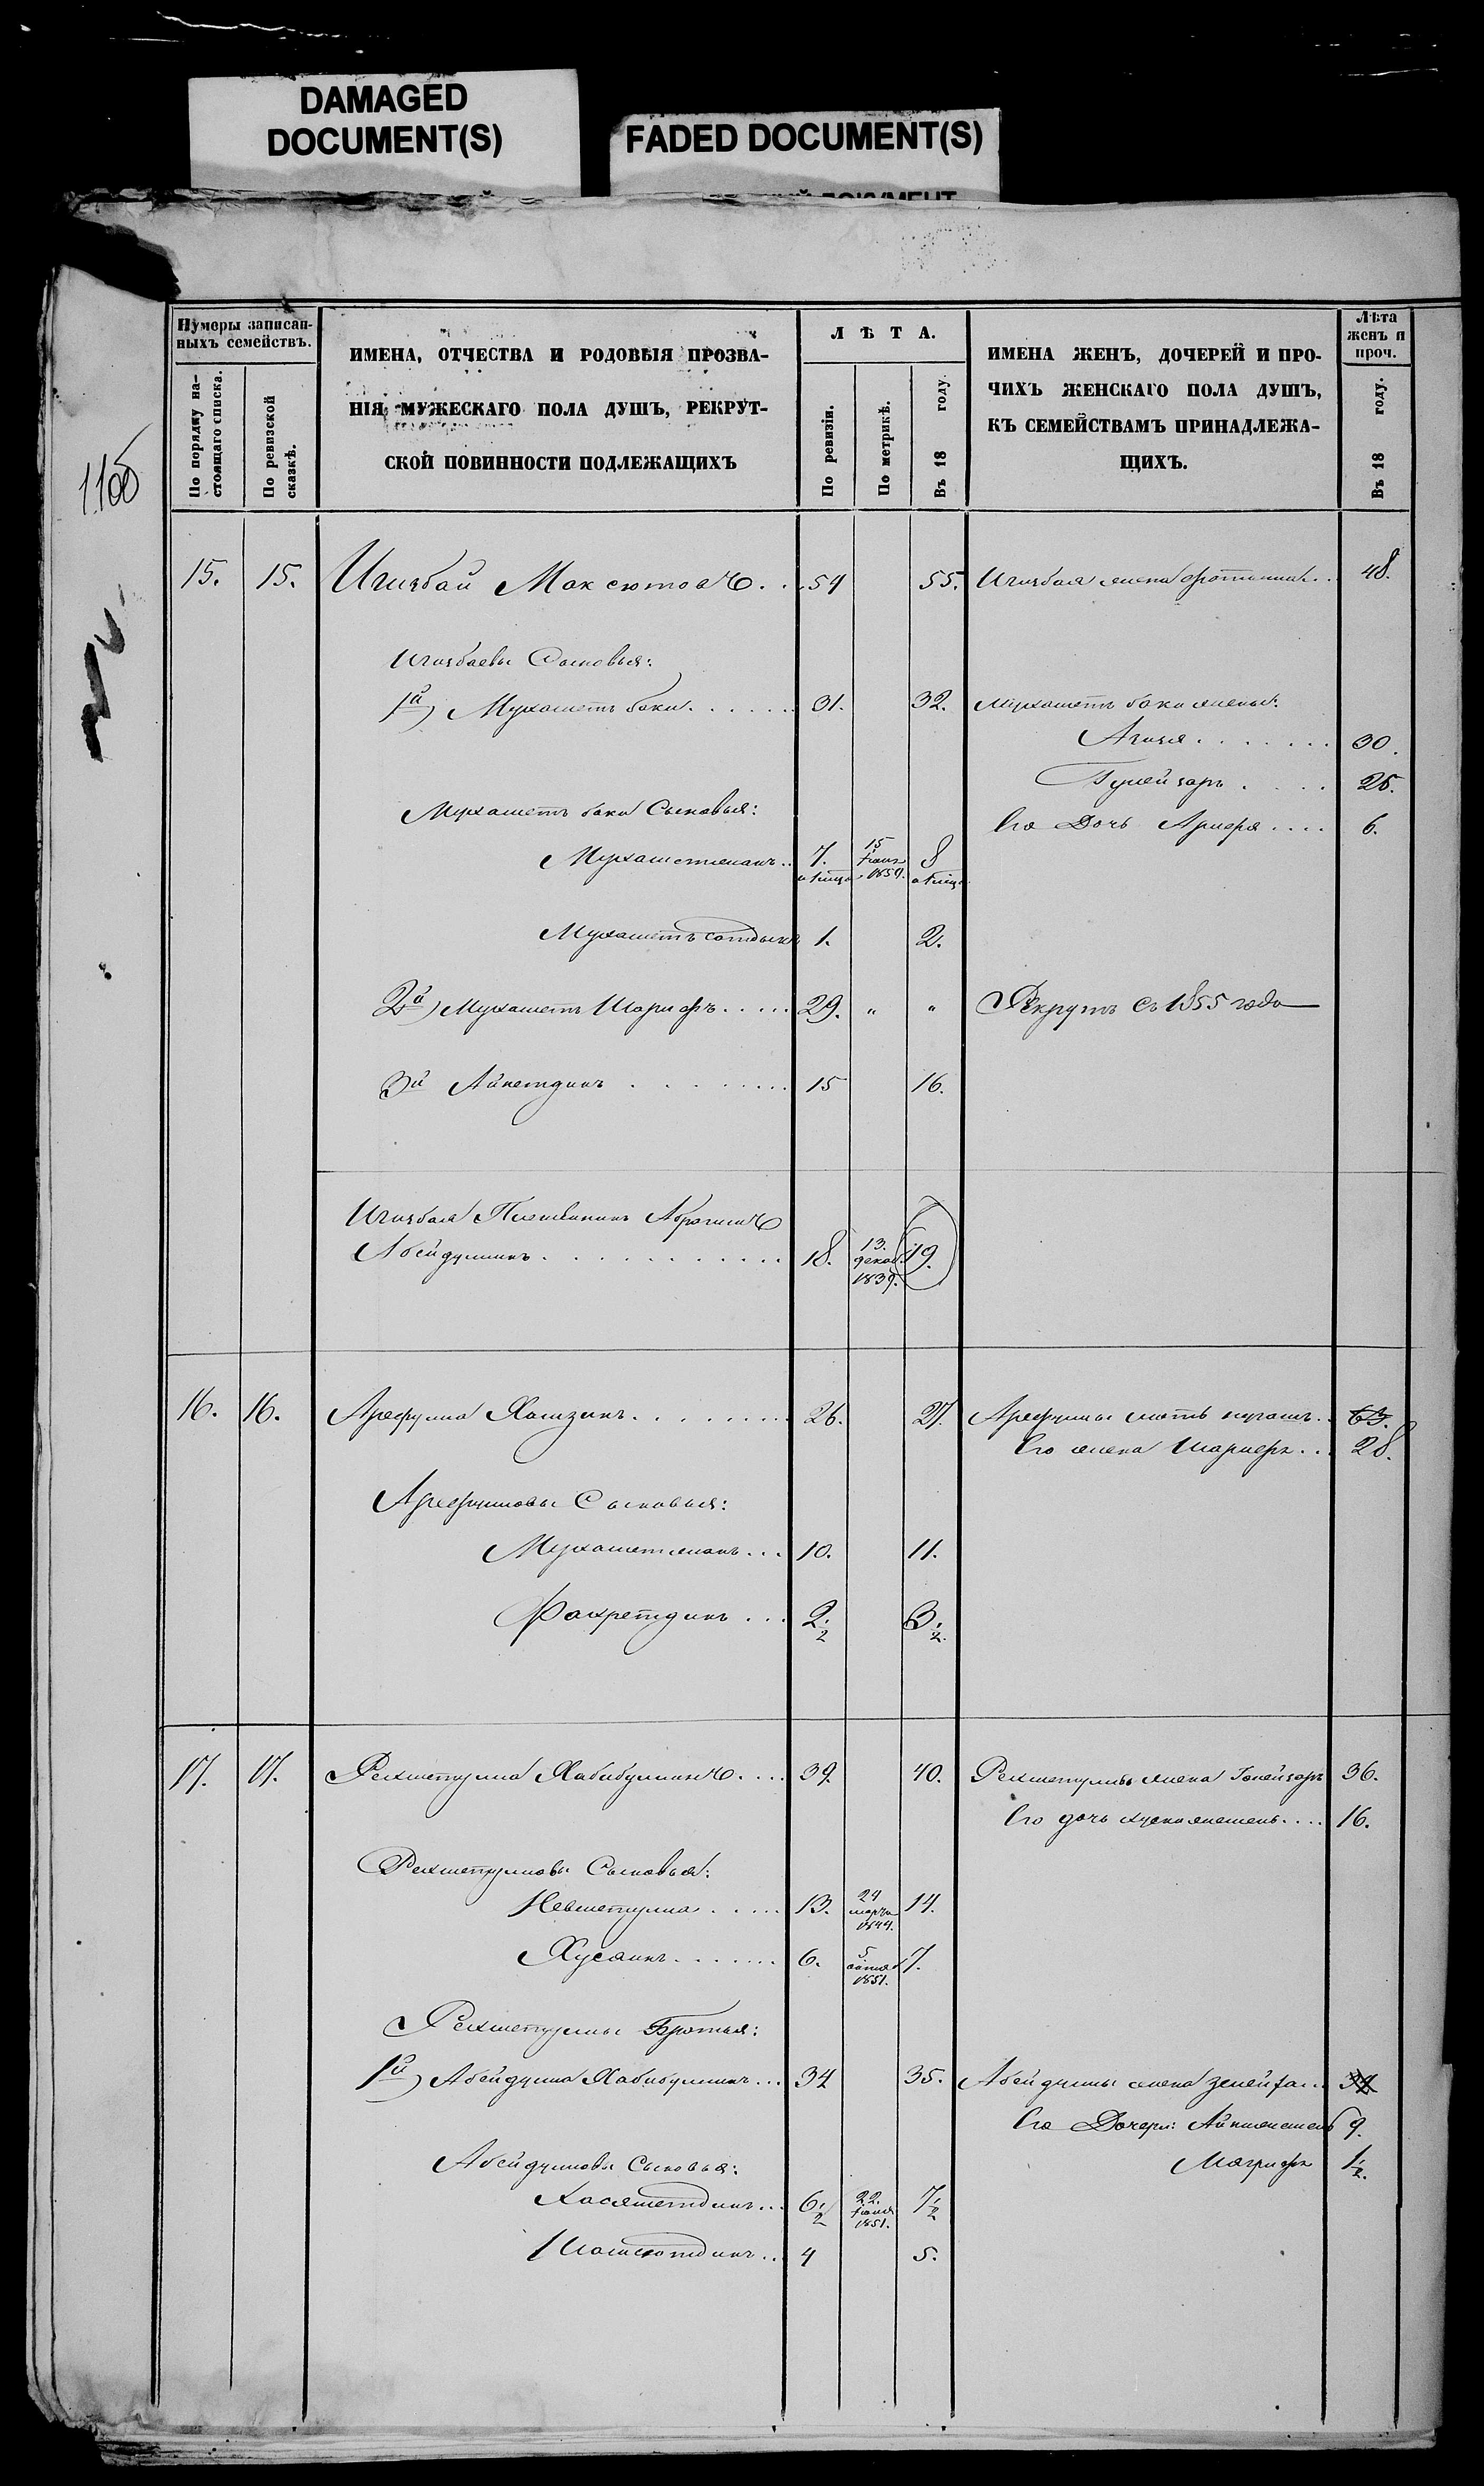 DAMAGED
DOCUMENT(S)
FADED DOCUMENT(S)
Нумеры записан-
ныхъ семействъ.
По порядку на-
стоящаго списка.
По ревизской
сказкѣ.
ИМЕНА, ОТЧЕСТВА И РОДОВЫЯ ПРОЗВА-
НІЯ МУЖЕСКАГО ПОЛА ДУШЪ, РЕКРУТ-
СКОЙ ПОВИННОСТИ ПОДЛЕЖАЩИХЪ
ЛѢТА.
По ревизіи.
По метрикѣ.
Въ 18 году.
ИМЕНА ЖЕНЪ, ДОЧЕРЕЙ И ПРО-
ЧИХЪ ЖЕНСКАГО ПОЛА ДУШЪ,
КЪ СЕМЕЙСТВАМЪ ПРИНАДЛЕЖА-
ЩИХЪ.
Лѣта
женъ и
проч.
Въ 18 году.
15. 15. Игизбай Максютовъ . . 54 55. Игизбая жена 48.
Игизбаевы Сыновья:
1й) Мухаметъ баки . . . . . . 31. 32. Мухаметъ баки жены:
Агизя . . . . . . . 30.
Гулейзаръ . . . . . 25.
Мухаметъ баки Сыновья:
Его Дочь . . . . 6.
Мухаметжанъ . . 7. 15 8
Мухаметъ садыкъ 1. 2.
2й) Мухаметъ Шарифъ . . . . . 29. " " Рекрутъ съ 1855 года
3й Айнетдинъ . . . . . . . . 15 16.
Игизбая Племянникъ
Абейдуллинъ . . . . . . . . . . . . 18. 13. декаб. 1839. 19.
16. 16. Арефулла Хамзинъ . . . . . . . . 26. 27. Арефуллы мать 63.
Его жена . . . 28.
Арефулловы Сыновья:
Мухаметжанъ . . . 10. 11.
Фахретдинъ . . . 2 1/2 3 1/2.
17. 17. Рехметулла Хабибуллинъ . . . . 39. 40. Рехметуллы жена 36.
Его дочь . . . . 16.
Рехметулловы Сыновья:
Небметулла . . . . . 13. 24 марта 1844. 14.
Хусаинъ . . . . . . . 6. 5 1851. 7.
Рехметуллы Братья:
1й) Абейдулла Хабибуллинъ . . . 34 35. Абейдуллы жена 34
Его Дочери: 9.
Магрифа 1/2.
Абейдулловы Сыновья:
. . . 6 1/2 22. 1851. 7 1/2
. . 4 5.